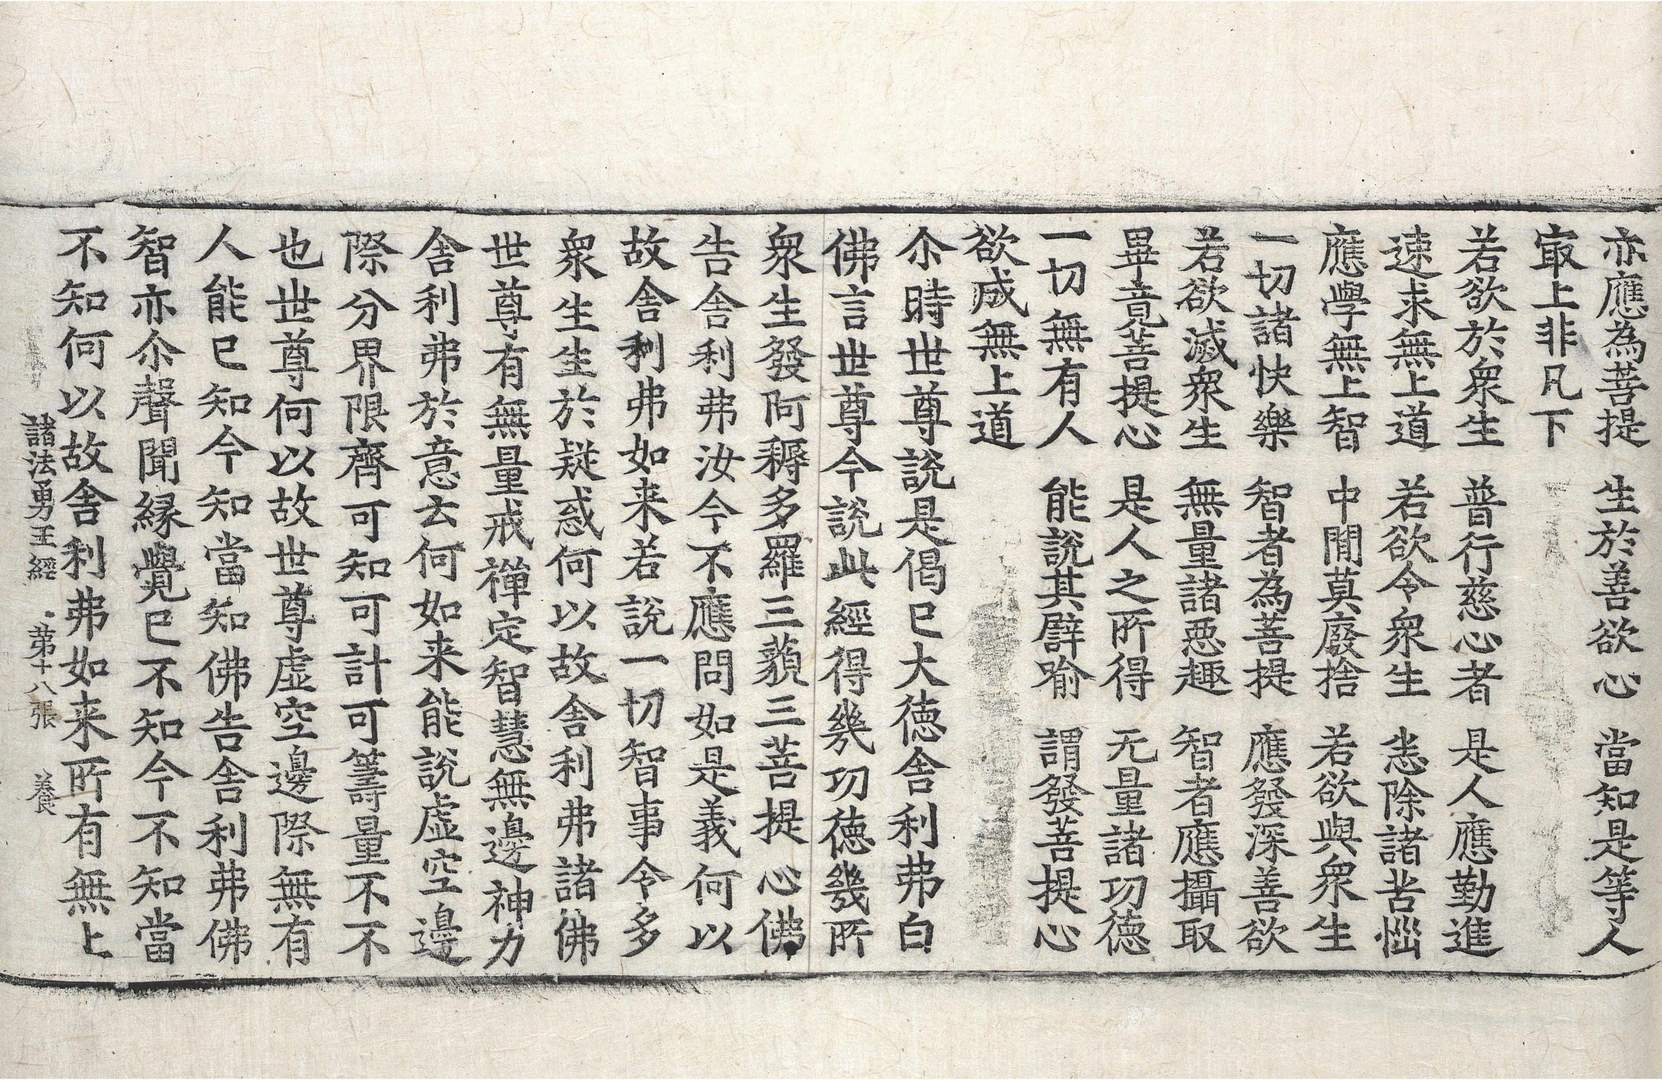 亦應為菩提　生於善欲心　當知是等人
㝡上非凡下
若欲於衆生　普行慈心者　是人應勤進
速求無上道　若欲令衆生　悉除諸苦惱
應學無上智　中閒莫廢捨　若欲與衆生
一切諸快樂　智者為菩提　應發深善欲
若欲滅衆生　無量諸惡趣　智者應攝取
畢竟菩提心　是人之所得　无量諸功德
一切無有人　能說其譬喻　謂發菩提心
欲成無上道
尒時世尊說是偈已大德舍利弗白
佛言世尊今說此經得幾功德幾所
衆生發阿耨多羅三藐三菩提心佛
告舍利弗汝今不應問如是義何以
故舍利弗如来若說一切智事令多
衆生生於疑惑何以故舍利弗諸佛
世尊有無量戒禪定智慧無邊神力
舍利弗於意去何如来能說虛空邊
際分界限齊可知可計可籌量不不
也世尊何以故世尊虛空邊際無有
人能已知今知當知佛告舍利弗佛
智亦尒聲聞緣覺已不知今不知當
不知何以故舍利弗如来所有無上
諸法勇王經　第十八張　養